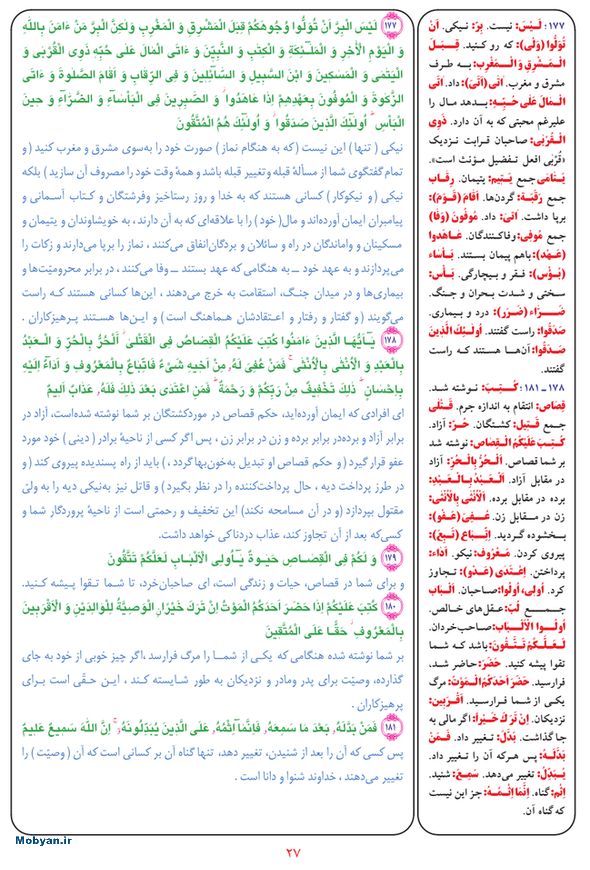 ۱۷۷: لَیْسَ: نیست. بِرّ: نیکی. اَنْ
تُوَلُّوا (وَلْی): که رو کنید. قِبَلَ
الْمَشْرِقِ وَ الْمَغْرِب: به طرف
مشرق و مغرب. آتی (اَتْی): داد. آتَی
الْمَالَ عَلی حُبِّهِ: بدهد مال را
علیرغم محبتی که به آن دارد. ذَوِی
الْقُرْبی: صاحبان قرابت نزدیک
«قُرْبی افعل تفضیل مؤنث است».
یَتامَی جمع یَتیم: یتیمان. رِقاب
جمع رَقَبَة: گردن‌ها. اَقامَ (قَوْم):
برپا داشت. آتی: داد. مُوفُونَ (وَفا)
جمع مُوفِی: وفاکنندگان. عاهَدوا
(عَهْد): باهم پیمان بستند. بَأْساء
(بُؤْس): فقر و بیچارگی. بَأْس:
سختی و شدت بحران و جنگ.
ضَرّاء (ضَرَر): درد و بیماری.
صَدَقُوا: راست گفتند. اُولئِکَ الَّذینَ
صَدَقُوا: آن‌ها هستند که راست
گفتند.
۱۷۸ ـ ۱۸۱: کُتِبَ: نوشته شد.
قِصاص: انتقام به اندازه جرم. قَتْلی
جمع قَتیل: کشتگان. حُرّ: آزاد.
کُتِبَ عَلَیْکُمُ الْقِصاص: نوشته شد
بر شما قصاص. اَلْحُرُّ بِالْحُرّ: آزاد
در مقابل آزاد. اَلْعَبْدُ بِالْعَبْد:
برده در مقابل برده. اَلْاُنْثی بِالْاُنْثی:
زن در مقابل زن. عُفِیَ (عَفْو):
بخشوده گردید. اِتِّباع (تَبِعَ):
پیروی کردن. مَعْرُوف: نیکو. اَداء:
پرداختن. اِعْتَدی (عَدْو): تجاوز
کرد. اُولی، اُولوا: صاحبان. اَلْباب
جمع لُبّ: عقل‌های خالص.
اُولُوا الْاَلْباب: صاحب‌خردان.
لَعَلَّکُمْ تَتَّقُونَ: باشد که شما
تقوا پیشه کنید. حَضَرَ: حاضر شد،
فرارسید. حَضَرَ اَحَدَکُمُ الْمَوْتُ: مرگ
یکی از شما فرارسید. اَقْرَبین:
نزدیکان. اِنْ تَرَکَ خَیْراً: اگر مالی به
جا گذاشت. بَدَّلَ: تغییر داد. فَمَنْ
بَدَّلَهُ: پس هرکه آن را تغییر داد.
یُبَدِّلُ: تغییر می‌دهد. سَمِعَ: شنید.
اِثْم: گناه. اِنَّما اِثْمُهُ: جز این نیست
که گناه آن.
۱۷۷ لَیْسَ الْبِرَّ اَنْ تُوَلُّوا وُجُوهَکُمْ قِبَلَ الْمَشْرِقِ وَ الْمَغْرِبِ وَلکِنَّ الْبِرَّ مَنْ ءَامَنَ بِاللهِ
وَ الْیَوْمِ الْأَخِرِ وَ الْمَلٰئِکَةِ وَ الْکِتٰبِ وَ النَّبِیّنَ وَ ءَاتَی الْمَالَ عَلی حُبِّهِ ذَوِی الْقُرْبی وَ
الْیَتٰمَی وَ الْمَسٰکینَ وَ ابْنَ السَّبیلِ وَ السَّآئِلینَ وَ فِی الرِّقابِ وَ اَقامَ الصَّلوةَ وَ ءَاتَی
الزَّکٰوةَ وَ الْمُوفُونَ بِعَهْدِهِمْ اِذَا عَاهَدُوا وَ الصّٰبِرینَ فِی الْبَأْسَآءِ وَ الضَّرَّآءِ وَ حینَ
الْبَأْسِ اُولٰئِکَ الَّذینَ صَدَقُوا وَ اُولٰئِکَ هُمُ الْمُتَّقُونَ
نیکی ( تنها) این نیست (که به هنگام نماز ) صورت خود را به‌سوی مشرق و مغرب کنید ( و
تمام گفتگوی شما از مسألهٔ قبله وتغییر قبله باشد و همهٔ وقت خود را مصروف آن سازید ) بلکه
نیکی ( و نیکوکار ) کسانی هستند که به خدا و روز رستاخیز وفرشتگان و کتاب آسمانی و
پیامبران ایمان آورده‌اند و مال( خود ) را با علاقه‌ای که به آن دارند، به خویشاوندان و یتیمان و
مسکینان و واماندگان در راه و سائلان و بردگان‌انفاق می‌کنند ، نماز را برپا می‌دارند و زکات را
می‌پردازند و به عهد خود ـ به هنگامی که عهد بستند ـ وفا می‌کنند ، در برابر محرومیّت‌ها و
بیماری‌ها و در میدان جنگ، استقامت به خرج می‌دهند ، این‌ها کسانی هستند کـه راست
می‌گویند ( و گفتار و رفتار و اعتقادشان هماهنگ است ) و این‌ها هستند پرهیزکاران .
۱۷۸ یٰۤاَیُّهَا الَّذینَ ءَامَنُوا کُتِبَ عَلَیْکُمُ الْقِصَاصُ فِی الْقَتْلٰی اَلْحُرُّ بِالْحُرِّ وَ الْعَبْدُ
بِالْعَبْدِ وَ الْاُنْثٰی بِالْاُنْثٰی فَمَنْ عُفِیَ لَهُ مِنْ اَخیهِ شَیْءٌ فَاتِّبَاعٌ بِالْمَعْرُوفِ وَ اَدَآءٌ اِلَیْهِ
بِاِحْسَانٍ ذٰلِکَ تَخْفیفٌ مِنْ رَبِّکُمْ وَ رَحْمَةٌ فَمَنِ اعْتَدٰی بَعْدَ ذٰلِکَ فَلَهُ عَذَابٌ اَلیمٌ
ای افرادی که ایمان آورده‌اید، حکم قصاص در موردکشتگان بر شما نوشته شده‌است، آزاد در
برابر آزاد و برده‌در برابر برده و زن در برابر زن ، پس اگر کسی از ناحیهٔ برادر ( دینی ) خود مورد
عفو قرار گیرد ( و حکم قصاص او تبدیل به‌خون‌بهاگردد ،) باید از راه پسندیده پیروی کند ( و
در طرز پرداخت دیه ، حال پرداخت‌کننده را در نظر بگیرد ) و قاتل نیز به‌نیکی دیه را به ولیّ
مقتول بپردازد (و در آن مسامحه نکند) این تخفیف و رحمتی است از ناحیهٔ پروردگار شما و
کسی‌که بعد از آن تجاوز کند، عذاب دردناکی خواهد داشت.
۱۷۹ وَ لَکُمْ فِی الْقِصَاصِ حَیٰوةٌ یٰۤاُولِی الْاَلْبَابِ لَعَلَّکُمْ تَتَّقُونَ
و برای شما در قصاص، حیات و زندگی است، ای صاحبان‌خرد، تا شمـا تقـوا پیشـه کنیـد.
۱۸۰ کُتِبَ عَلَیْکُمْ اِذَا حَضَرَ اَحَدَکُمُ الْمَوْتُ اِنْ تَرَکَ خَیْرًا الْوَصِیَّةُ لِلْوَالِدَیْنِ وَ الْاَقْرَبینَ
بِالْمَعْرُوفِ حَقًّا عَلَی الْمُتَّقینَ
بر شما نوشته شده هنگامی که یکـی از شمــا را مرگ فرارسد ،اگر چیز خوبی از خود به جای
گذارده، وصیّت برای پدر ومادر و نزدیکان به طور شایسته کنـد ، این حقّـی است بـرای
پرهیزکاران .
۱۸۱ فَمَنْ بَدَّلَهُ بَعْدَ مَا سَمِعَهُ فَاِنَّمَآ اِثْمُهُ عَلَی الَّذینَ یُبَدِّلُونَهُ اِنَّ اللهَ سَمیعٌ عَلیمٌ
پس کسی که آن را بعد از شنیدن، تغییر دهد، تنها گناه آن بر کسانی است که آن ( وصیّت ) را
تغییر می‌دهند ، خداوند شنوا و دانا است .
Mobyan.ir
۲۷